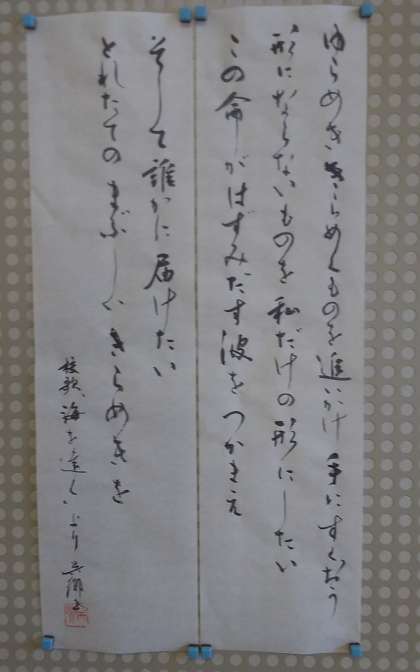 ゆらめききらめくものを追いかけ手にすくおう
形にならないものを私だけの形にしたい
この命がはずみだす波をつかまえ
そして誰かに届けたい
とれたてのまぶしいきらめきを
校歌、海を遠く、より